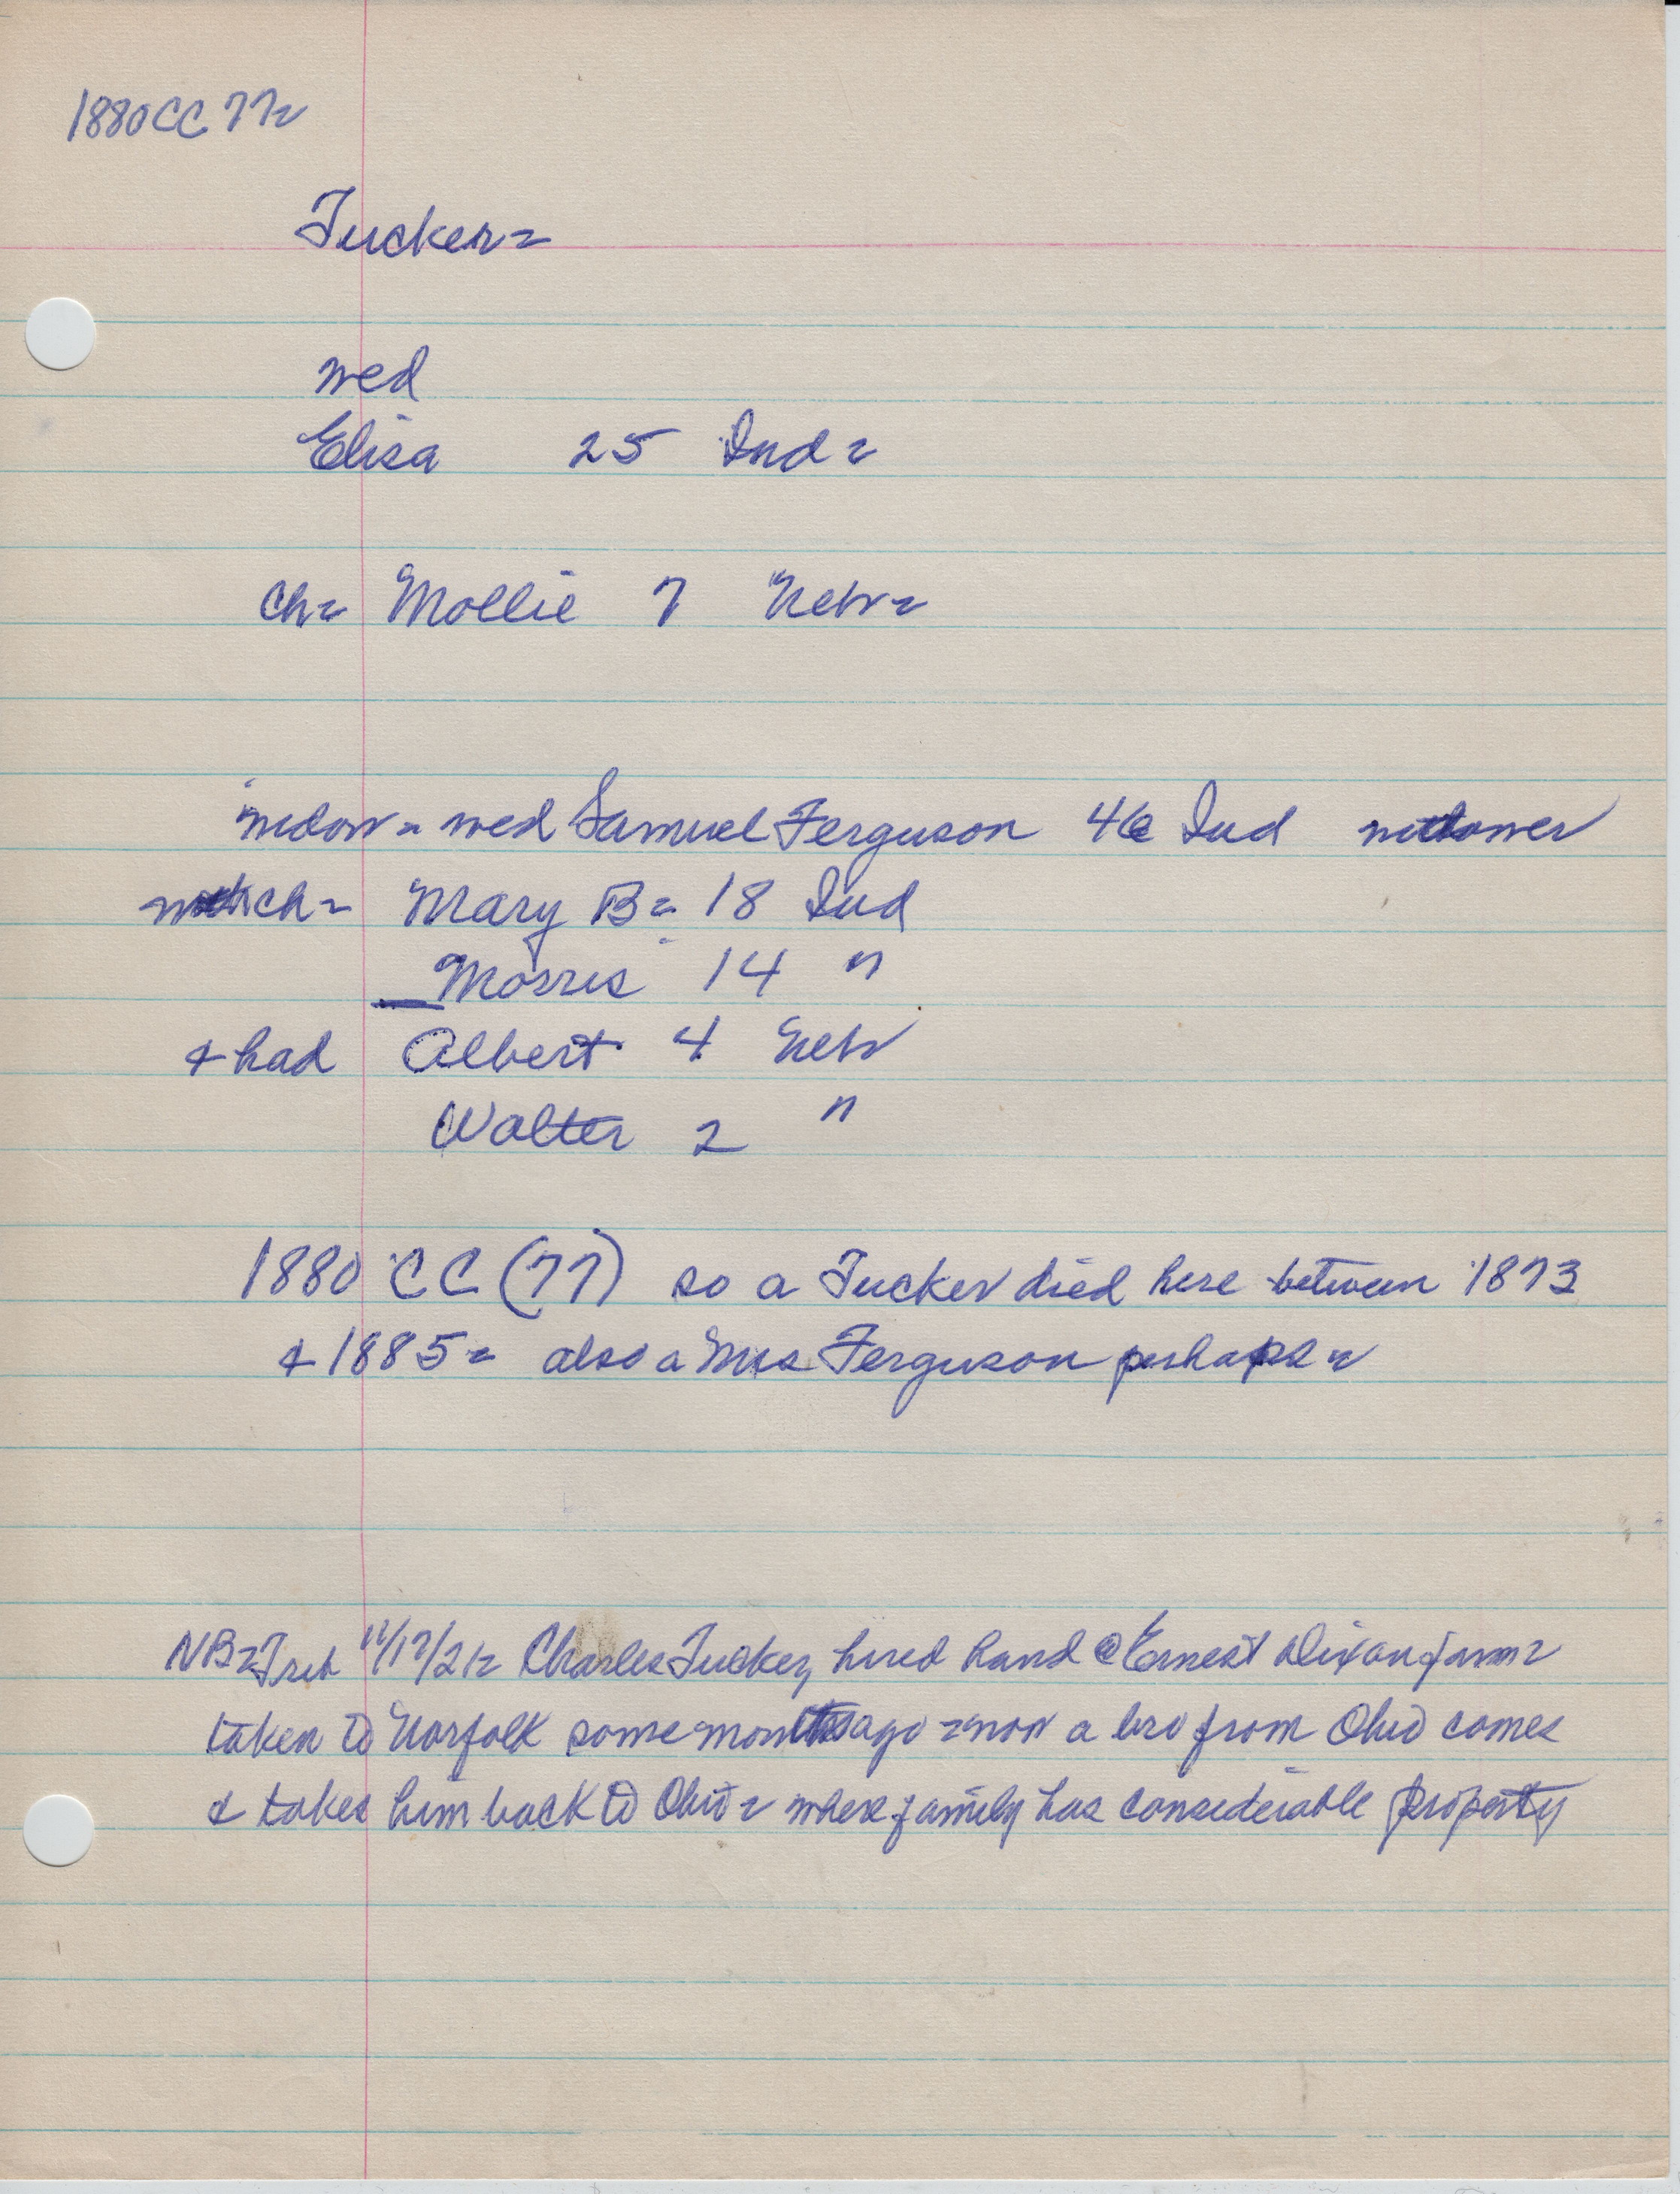 1880 CC 77=
Tucker=
wed
Elisa 25 Ind=
ch= Mollie 7 Neb=
widow= wed Samuel Ferguson 46 Ind widower
with ch= Mary B= 18 Ind
Morris 14 "
& had Albert 4 Neb
Walter 2 "
1880 CC (77) so a Tucker died here between 1873
& 1885= also a Mrs Ferguson perhaps=
NB=Trib 11/17/21= Charles Tucker, hired hand @ Ernest Dixon farm=
taken to Norfolk some months ago = now a bro from Ohio comes
& takes him back to Ohio= where family has considerable property